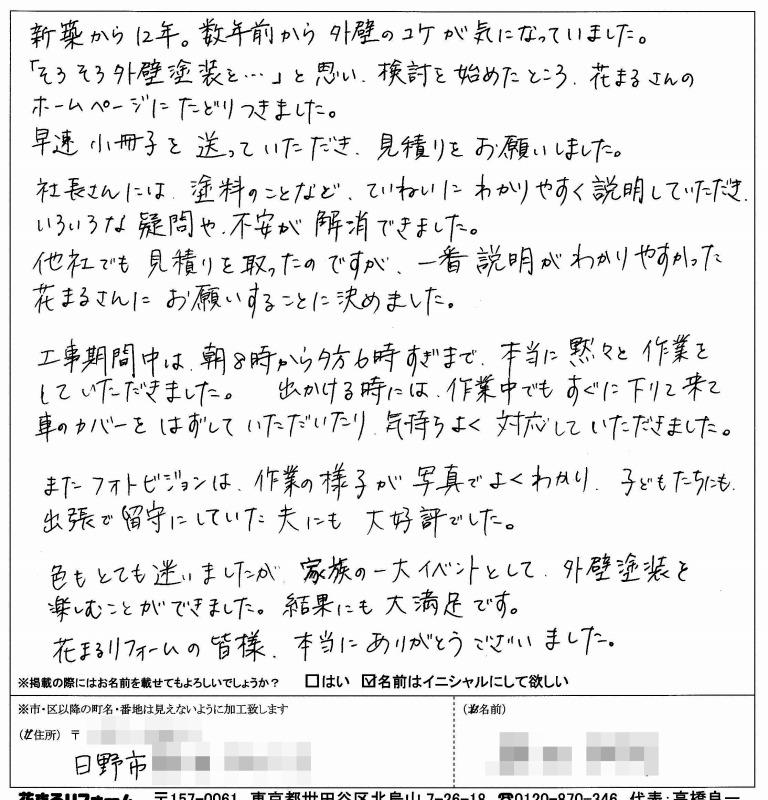 新築から12年。数年前から外壁のコケが気になっていました。
「そろそろ外壁塗装を…」と思い、検討を始めたところ、花まるさんの
ホームページにたどりつきました。
早速小冊子を送っていただき、見積りをお願いしました。
社長さんには、塗料のことなど、ていねいにわかりやすく説明していただき、
いろいろな疑問や、不安が解消できました。
他社でも見積りを取ったのですが、一番説明がわかりやすかった
花まるさんにお願いすることに決めました。
工事期間中は、朝8時から夕方6時すぎまで、本当に黙々と作業を
していただきました。 出かける時には、作業中でもすぐに下りて来て
車のカバーをはずしていただいたり、気持ちよく対応していただきました。
またフォトビジョンは、作業の様子が写真でよくわかり、子どもたちにも、
出張で留守にしていた夫にも大好評でした。
色もとても迷いましたが、家族の一大イベントとして、外壁塗装を
楽しむことができました。結果にも大満足です。
花まるリフォームの皆様、本当にありがとうございました。
※掲載の際にはお名前を載せてもよろしいでしょうか? □はい ☑名前はイニシャルにして欲しい
※市・区以降の町名・番地は見えないように加工致します
(ご住所) 〒
(お名前)
日野市
花まるリフォーム 〒157-0061 東京都世田谷区北烏山7-26-18 ☎0120-870-346 代表:高橋良一